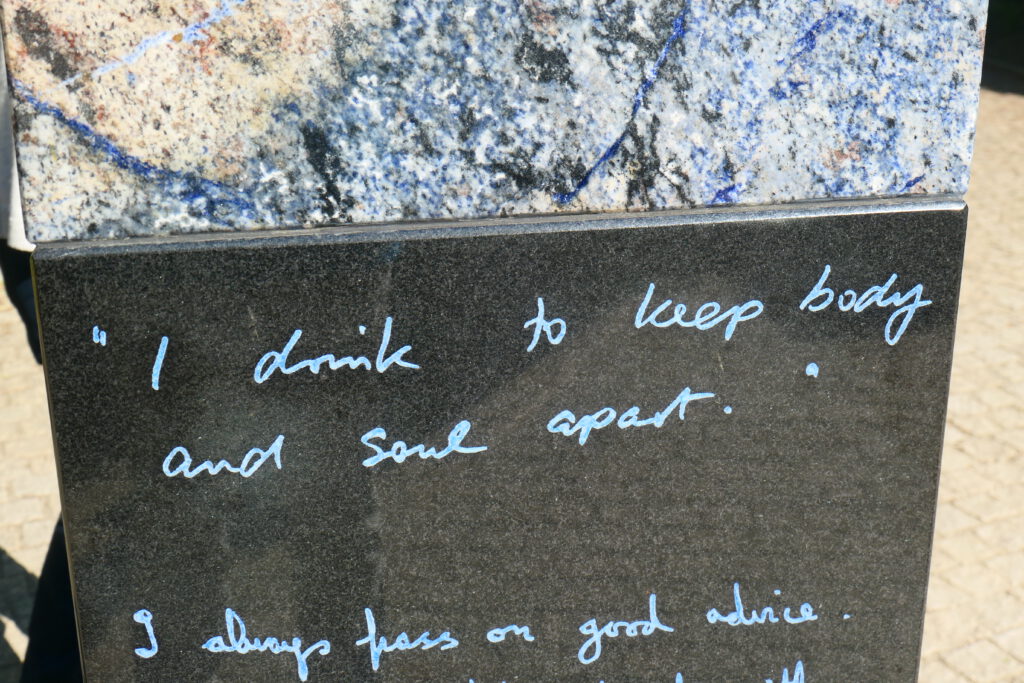 " I drink to keep body
and soul apart. "
I always pass on good advice.